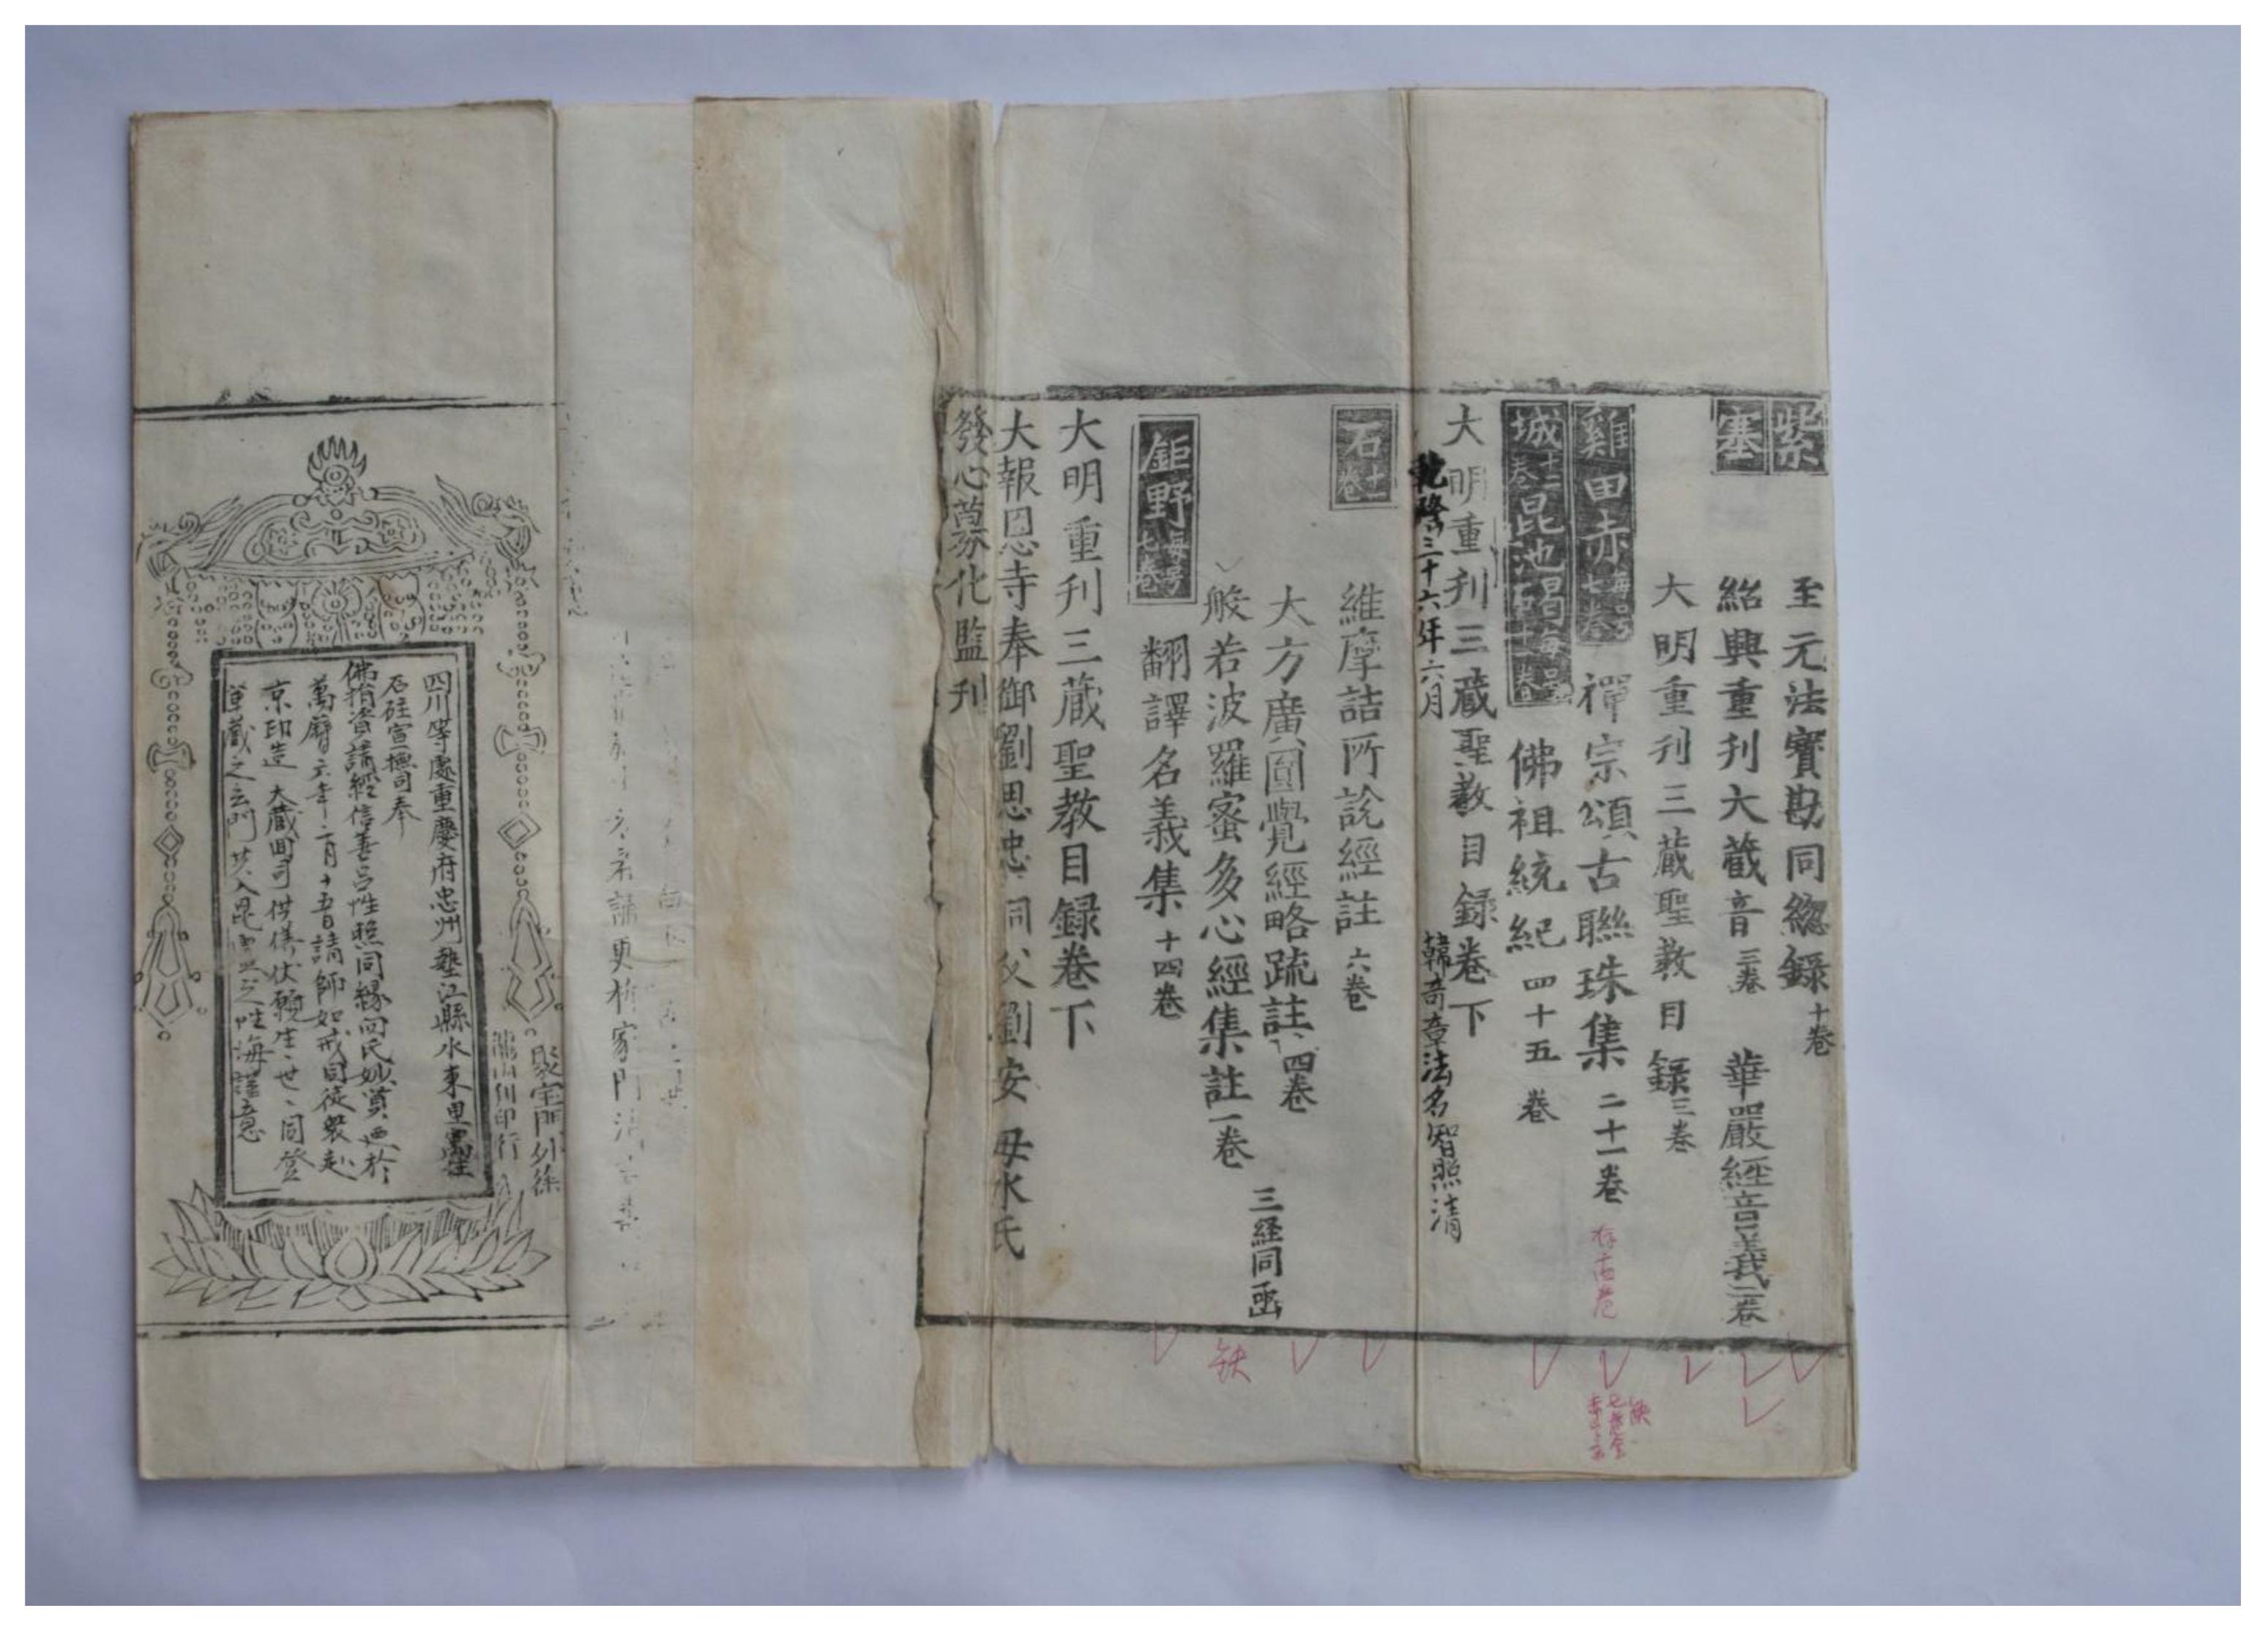 紫 至元法寶勘同緫録 十卷
塞 紹興重刋大藏音 三卷 華嚴經音義二卷
大明重刋三藏聖教目録三卷
雞田赤 每号七卷 禪宗頌古聯珠集 二十一卷
城 十二卷 昆池碣 每号 石 十一卷 佛祖統紀 四十五卷
大明重刋三藏聖教目録卷下
乾隆三十六年六月 韓竒章法名智照清
石 十一卷 維摩詰所說經註 六卷
大方廣圓覺經略疏註 四卷
般若波羅蜜多心經集註一卷 三経同函
鉅野 每号七卷 翻譯名義集 十四卷
大明重刋三藏聖教目録卷下
大報恩寺奉御劉思忠同父劉安 母水氏
發心募化監刋
缺
聚宝門外徐
印行
四川等處重慶府忠州墊江縣水東里寓住
石砫宣撫司奉
佛捐資請經信善呂性照同緣向氏妙賞 於
萬曆六年二月十五日請師如戒同徒衆赴
京印造 大藏 司供養伏願生世、同登
藏之玄門共入毘盧之性海謹意